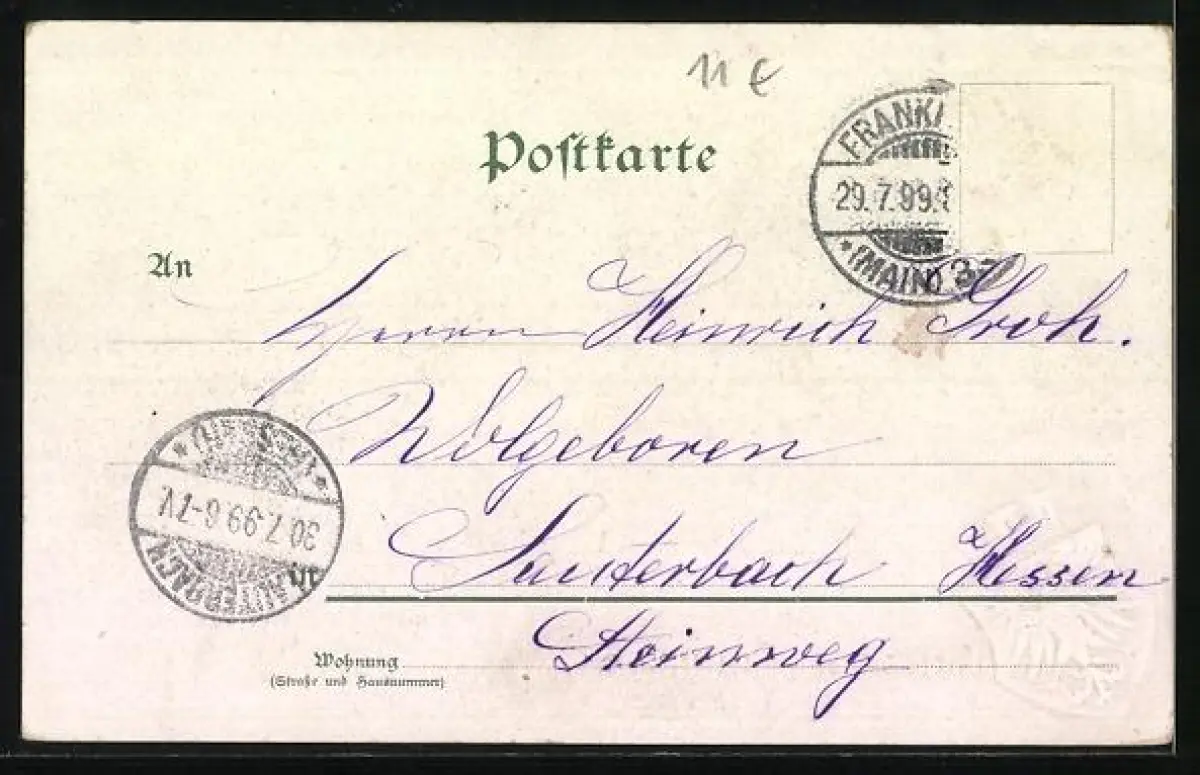 11 €
Postkarte
FRANKF
29.7.99.
* (MAIN) 3
An
Herrn Heinrich Groh.
Wolgeboren
* (HESSEN) *
30.7.99.6-7V.
LAUTERBACH
in
Lauterbach Hessen
Steinweg
Wohnung
(Straße und Hausnummer)